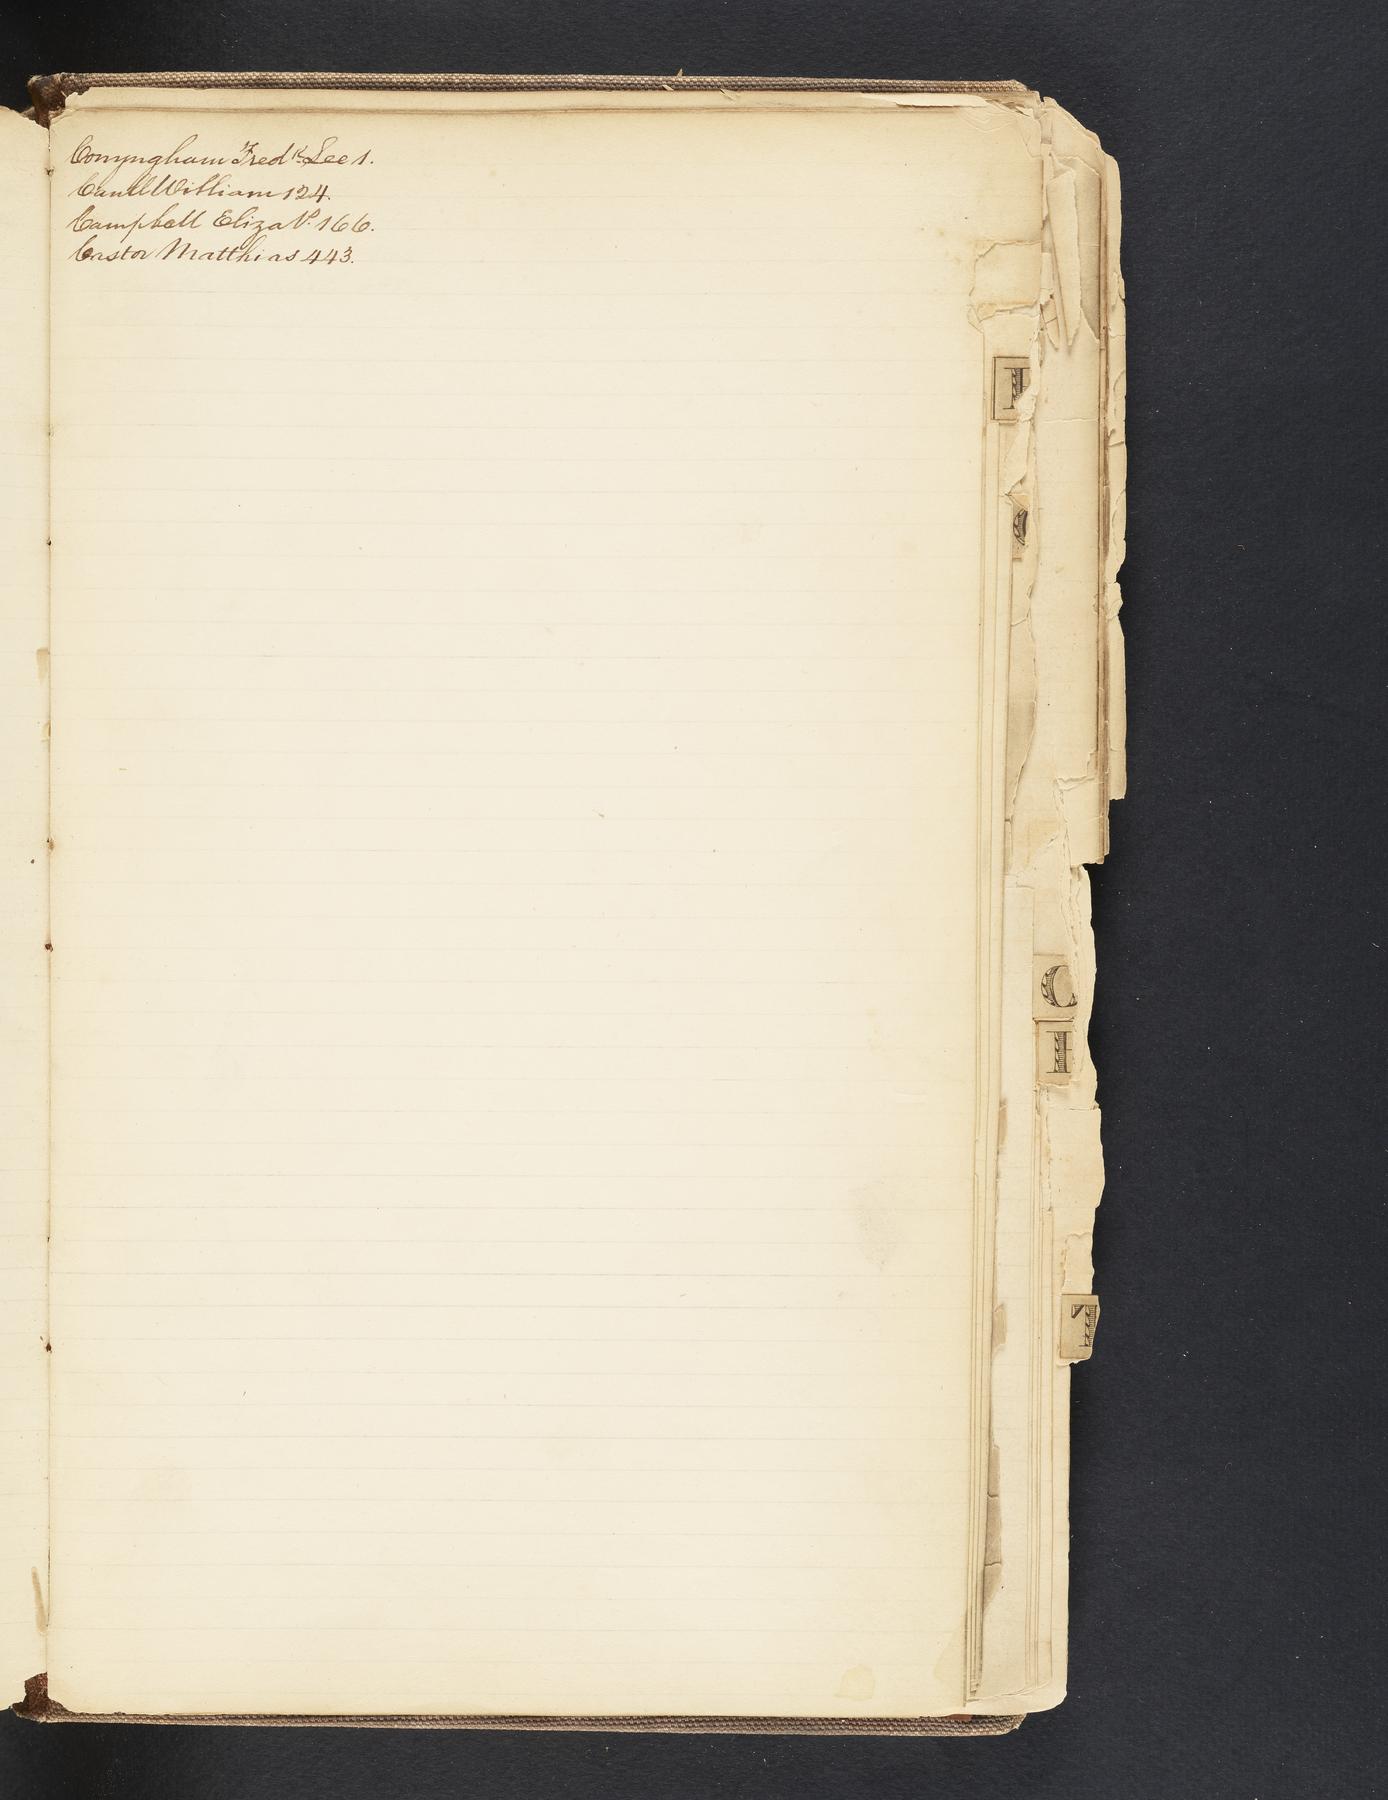 Conyngham Fredk Lee 1.
Cantll William 124.
Campbell Eliza P. 166.
Castor Matthias 443.
C
I
T